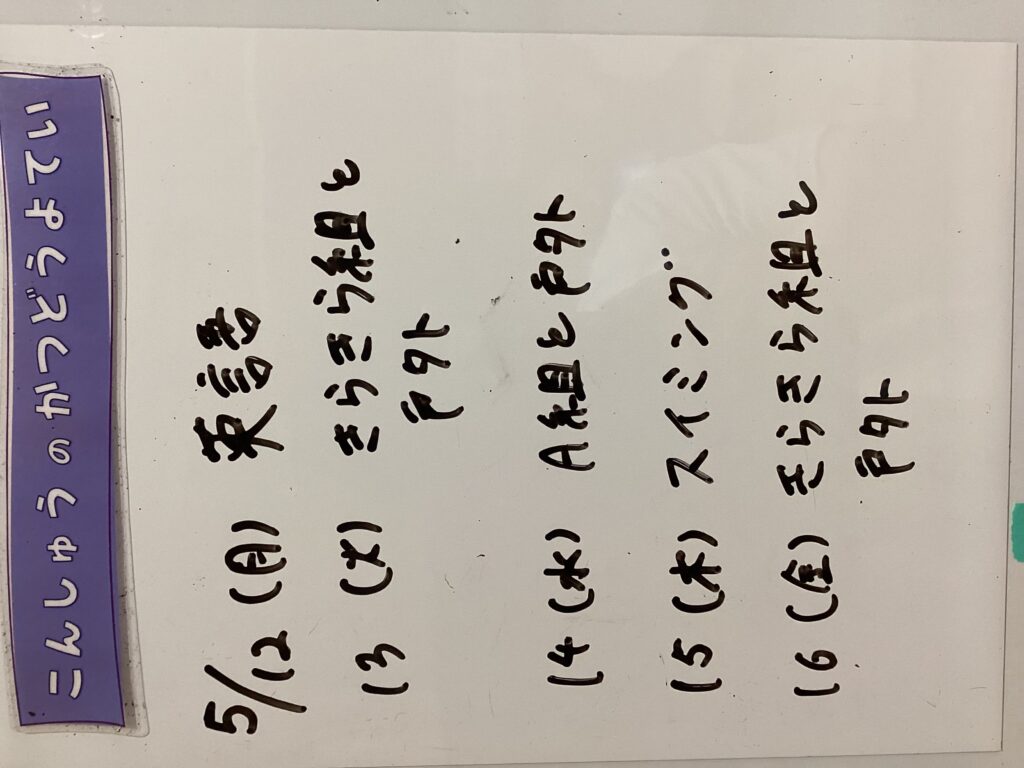 こんしゅうのかつどうよてい
5/12 (月) 英語
13 (火) きらきら組と
戸外
14 (水) A組と戸外
15 (木) スイミング
16 (金) きらきら組と
戸外